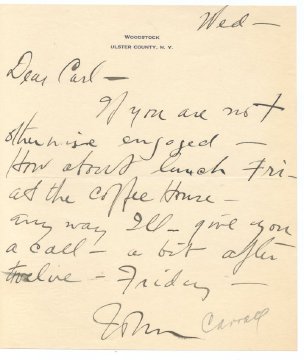 Wed —
WOODSTOCK
ULSTER COUNTY, N. Y.
Dear Carl —
If you are not
otherwise engaged —
How about lunch Fri-
at the Coffee House —
any way I'll — give you
a call — a bit after
twelve — Friday —
John Carroll